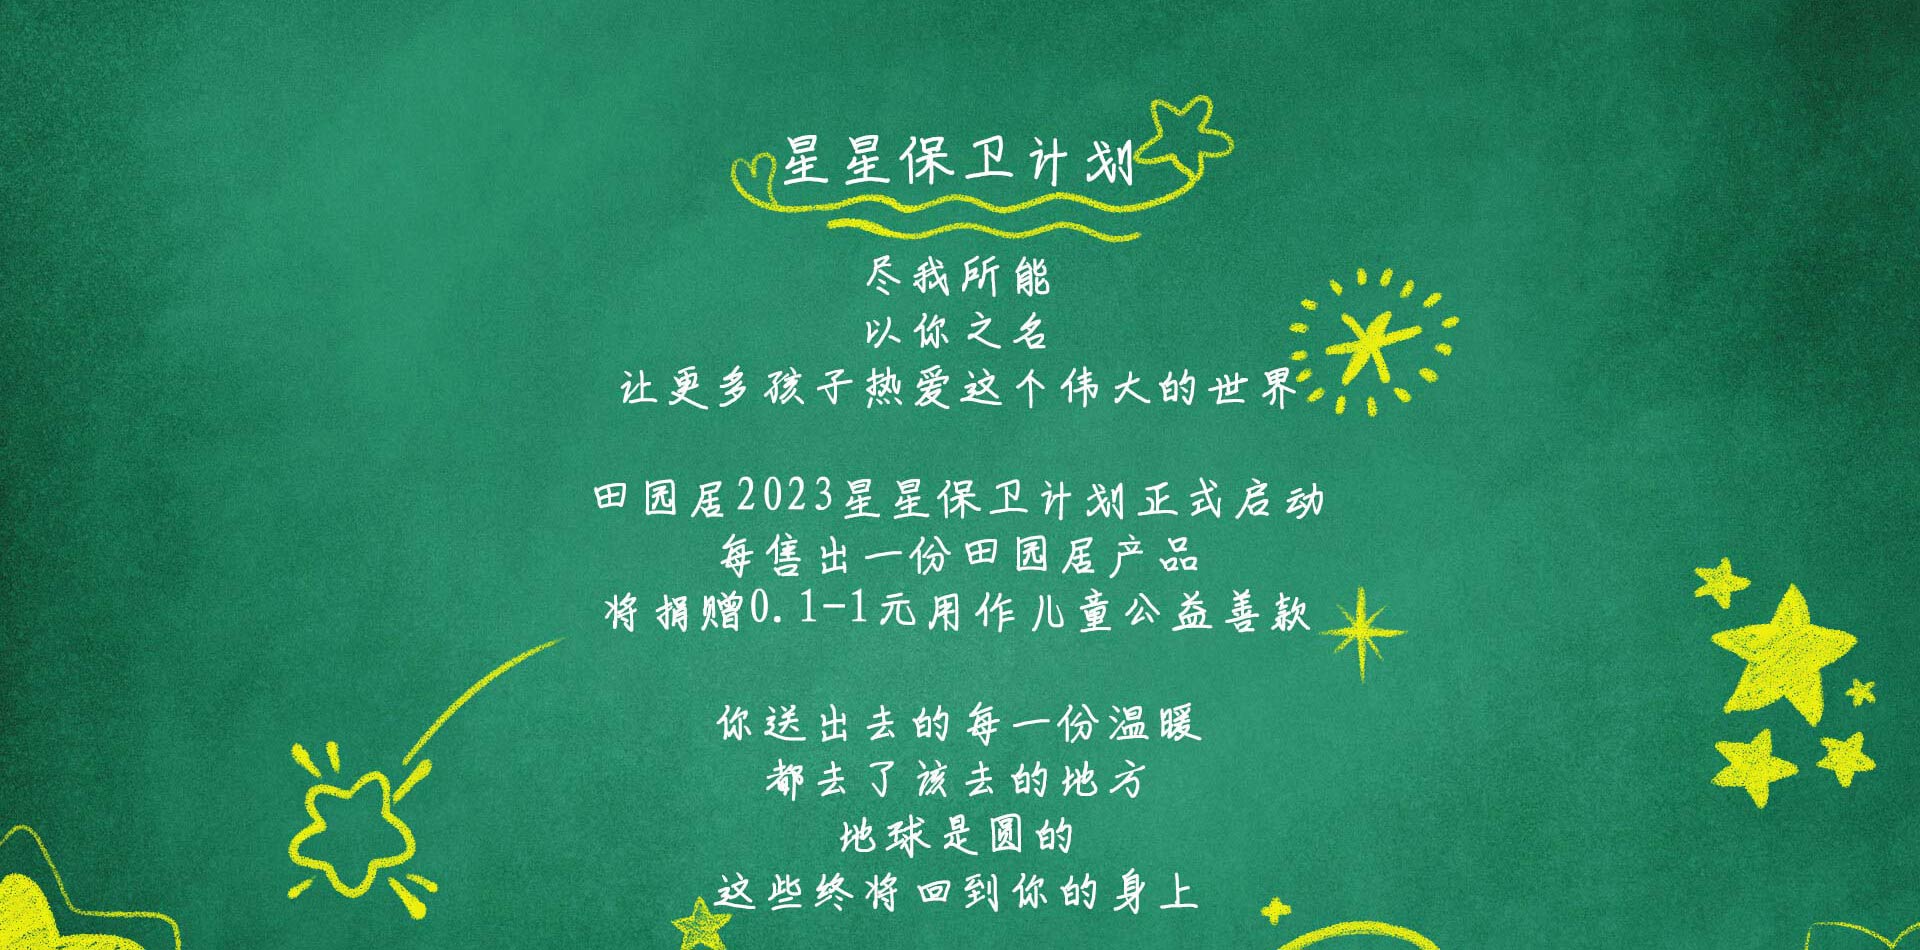 星星保卫计划
尽我所能
以你之名
让更多孩子热爱这个伟大的世界
田园居2023星星保卫计划正式启动
每售出一份田园居产品
将捐赠0.1-1元用作儿童公益善款
你送出去的每一份温暖
都去了该去的地方
地球是圆的
这些终将回到你的身上